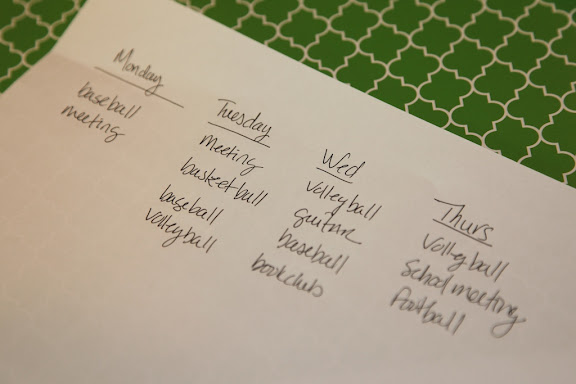 Monday
baseball
meeting
Tuesday
meeting
basketball
baseball
volleyball
Wed
volleyball
guitar
baseball
bookclub
Thurs
volleyball
School meeting
football